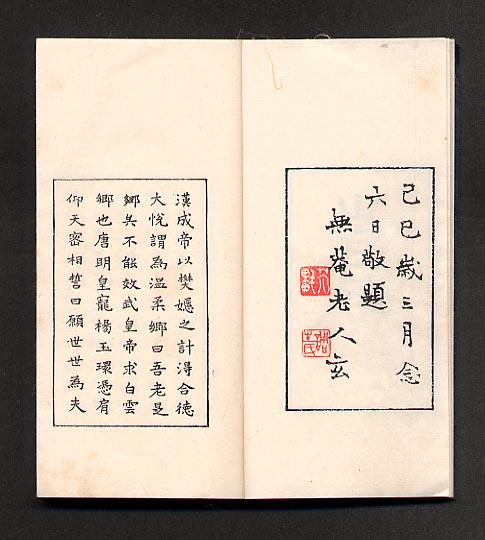 己巳歲三月念
六日敬題
無菴老人玄
漢成帝以樊嫕之計得合德
大悅謂為溫柔鄉曰吾老是
鄉矣不能效武皇帝求白雲
鄉也唐明皇寵楊玉環憑肩
仰天密相誓曰願世世為夫